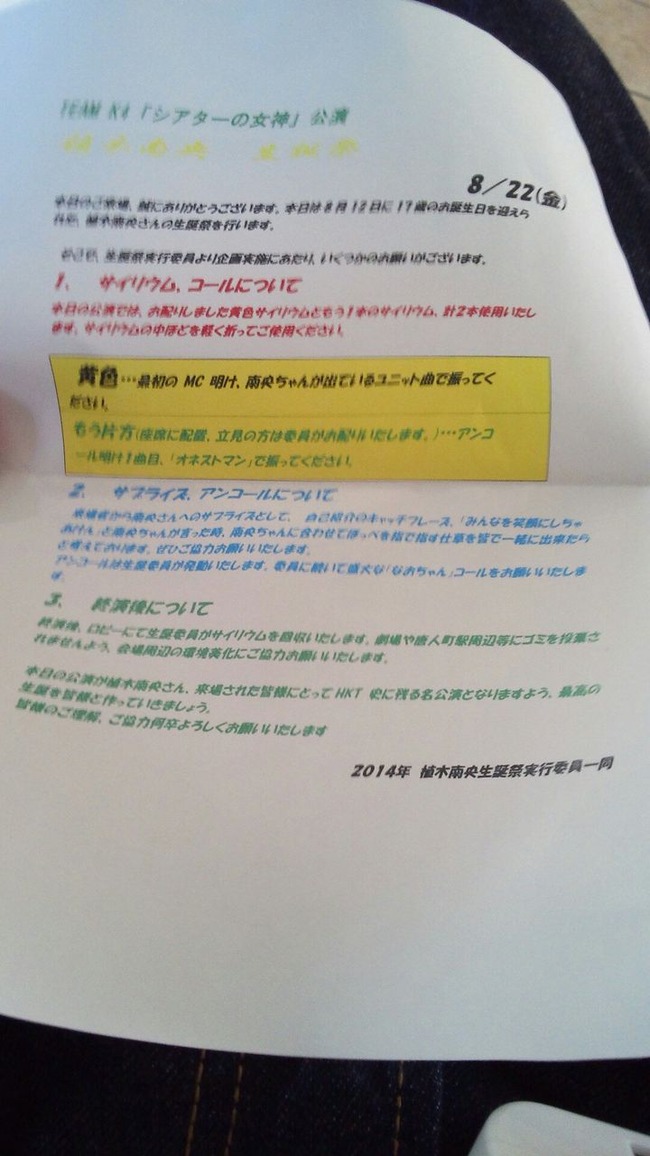 TEAM K4「シアターの女神」公演
植木南央 生誕祭
8/22(金)
本日のご来場、誠にありがとうございます。本日は8月12日に17歳のお誕生日を迎えら
れた、植木南央さんの生誕祭を行います。
そこで、生誕祭実行委員より企画実施にあたり、いくつかのお願いがございます。
1. サイリウム、コールについて
本日の公演では、お配りしました黄色サイリウムともう1本のサイリウム、計2本使用いたし
ます。サイリウムの中ほどを軽く折ってご使用ください。
黄色…最初の MC 明け、南央ちゃんが出ているユニット曲で振ってく
ださい。
もう片方(座席に配置、立見の方は委員がお配りいたします。)…アンコ
ール明け1曲目、「オネストマン」で振ってください。
2. サプライズ、アンコールについて
来場者から南央さんへのサプライズとして、 自己紹介のキャッチフレーズ、「みんなを笑顔にしちゃ
おけん」と南央ちゃんが言った時、南央ちゃんに合わせてほっぺを指で指す仕草を皆で一緒に出来たら
と考えております。ぜひご協力お願いいたします。
アンコールは生誕委員が発動いたします。委員に続いて盛大な「なおちゃん」コールをお願いいたしま
す。
3. 終演後について
終演後、ロビーにて生誕委員がサイリウムを回収いたします。劇場や唐人町駅周辺等にゴミを投棄さ
れませんよう、会場周辺の環境美化にご協力お願いいたします。
本日の公演が植木南央さん、来場された皆様にとって HKT 史に残る名公演となりますよう、最高の
生誕を皆様と作っていきましょう。
皆様のご理解、ご協力何卒よろしくお願いいたします
2014年 植木南央生誕祭実行委員一同